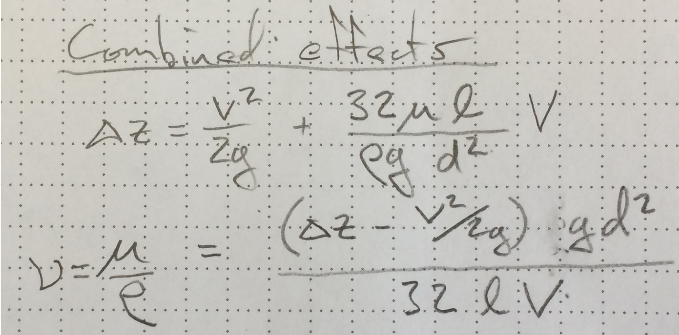 Combined effects
Δz = v²/2g + 32μl/ρg d² V
ν = μ/ρ = (Δz - v²/2g) gd² / 32 l V